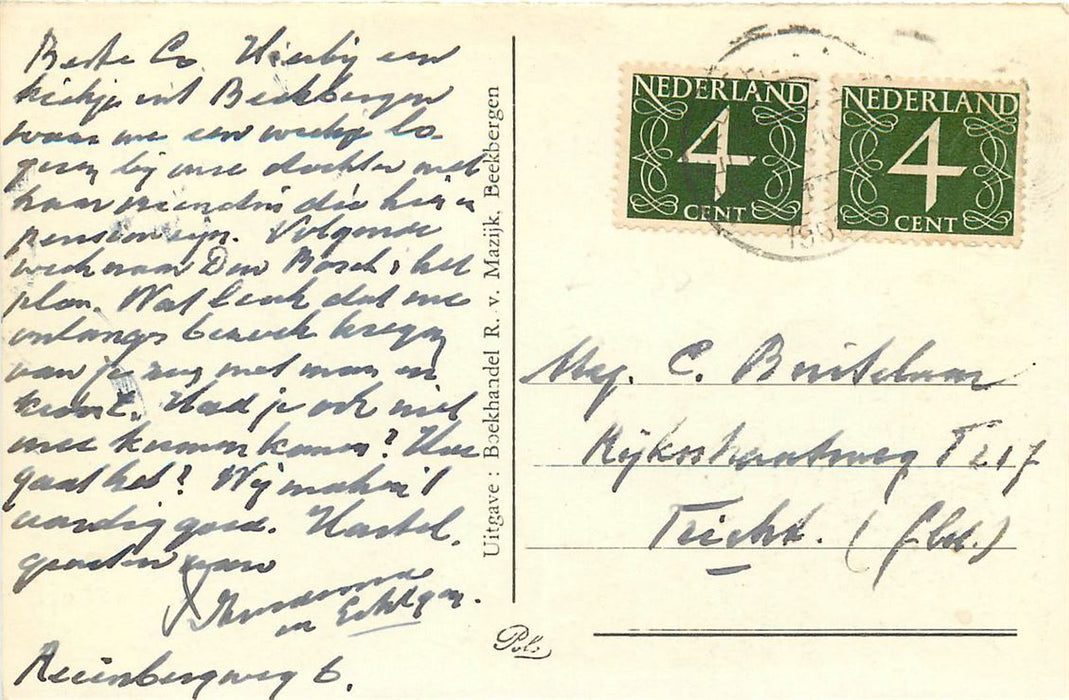 Beste Co. Hierbij een
kiekje uit Beekbergen
waar we een weekje lo-
geren bij onze dochter met
haar vriendin die hier in
pension zijn. Volgende
week naar Den Bosch is het
plan. Wat leuk dat we
onlangs bezoek kregen
van je zus met man en
kind. Had je ook niet
mee kunnen komen? Hoe
gaat het? Wij maken 't
aardig goed. Hartel.
groeten van
en Echtgen.
6.
Uitgave : Boekhandel R. v. Mazijk, Beekbergen
NEDERLAND
4
CENT
NEDERLAND
4
CENT
Mej. C. Buitelaar
Rijksstraatweg
Tricht. (Gld.)